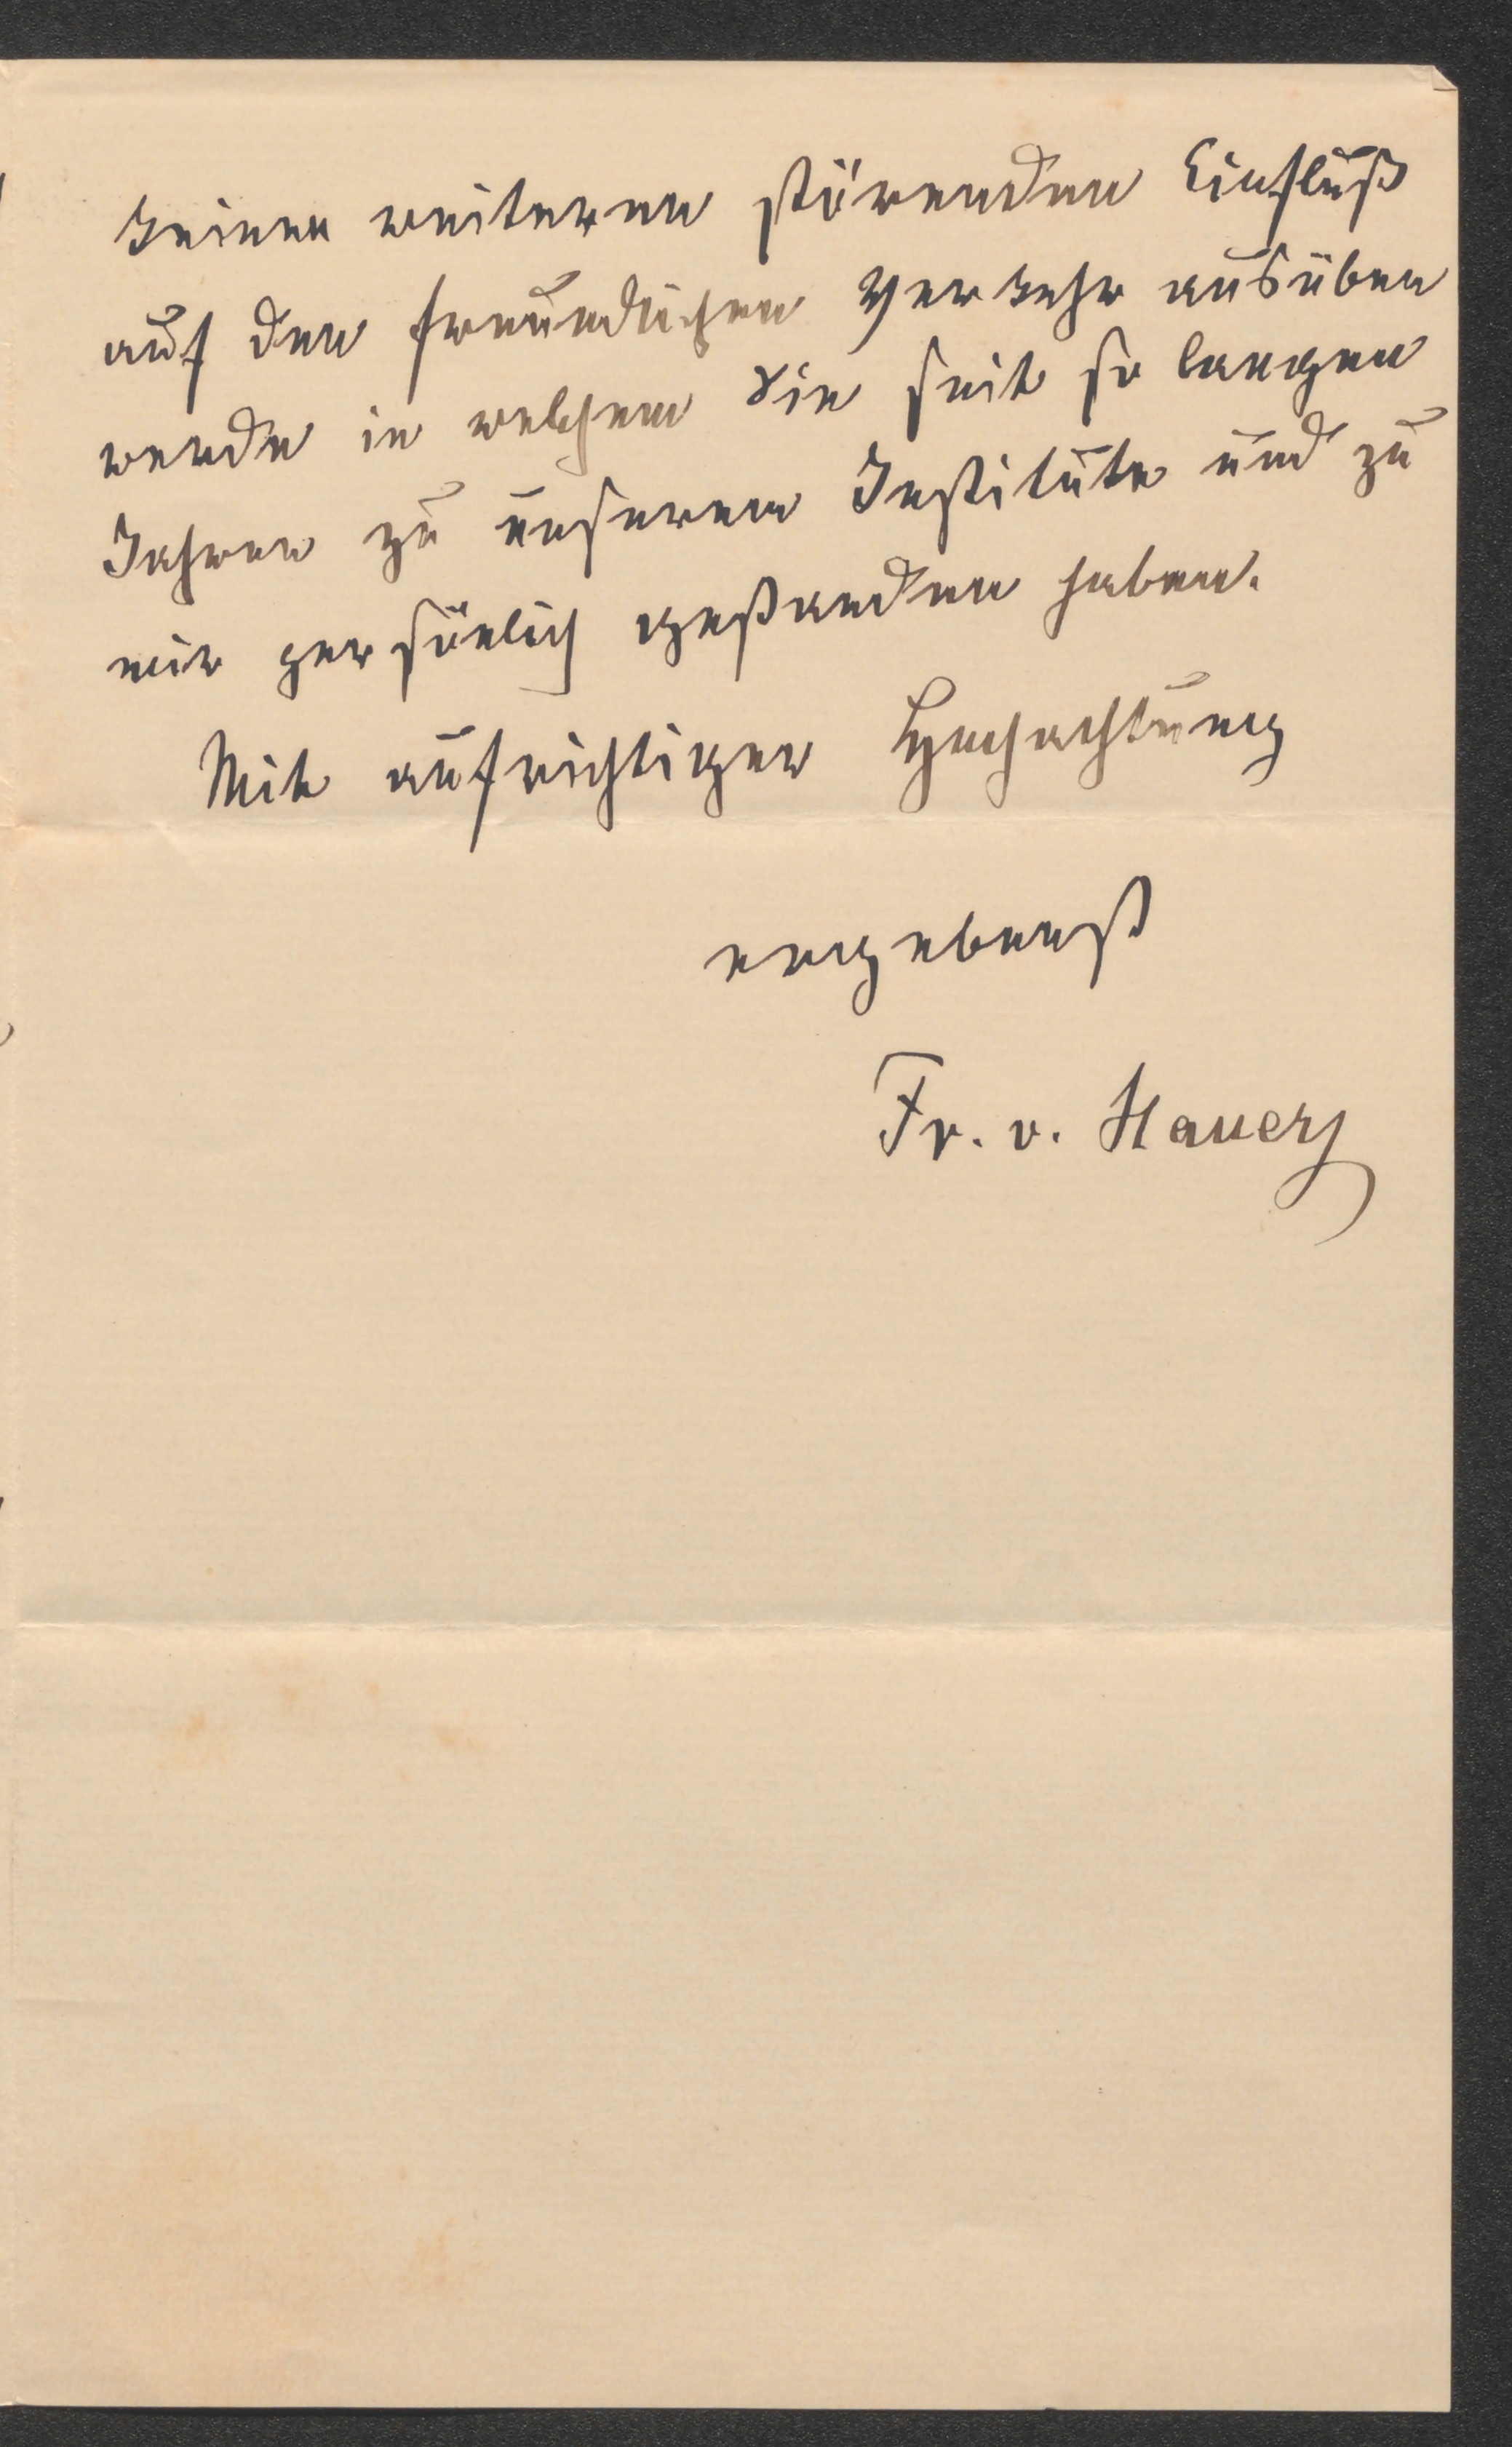 keinen weiteren störenden Einfluß
auf den freundlichen Verkehr ausüben
werde in welchem Sie seit so langen
Jahren zu unserem Institute und zu
mir persönlich gestanden haben.
Mit aufrichtiger Hochachtung
ergebenst
Fr. v. Hauer